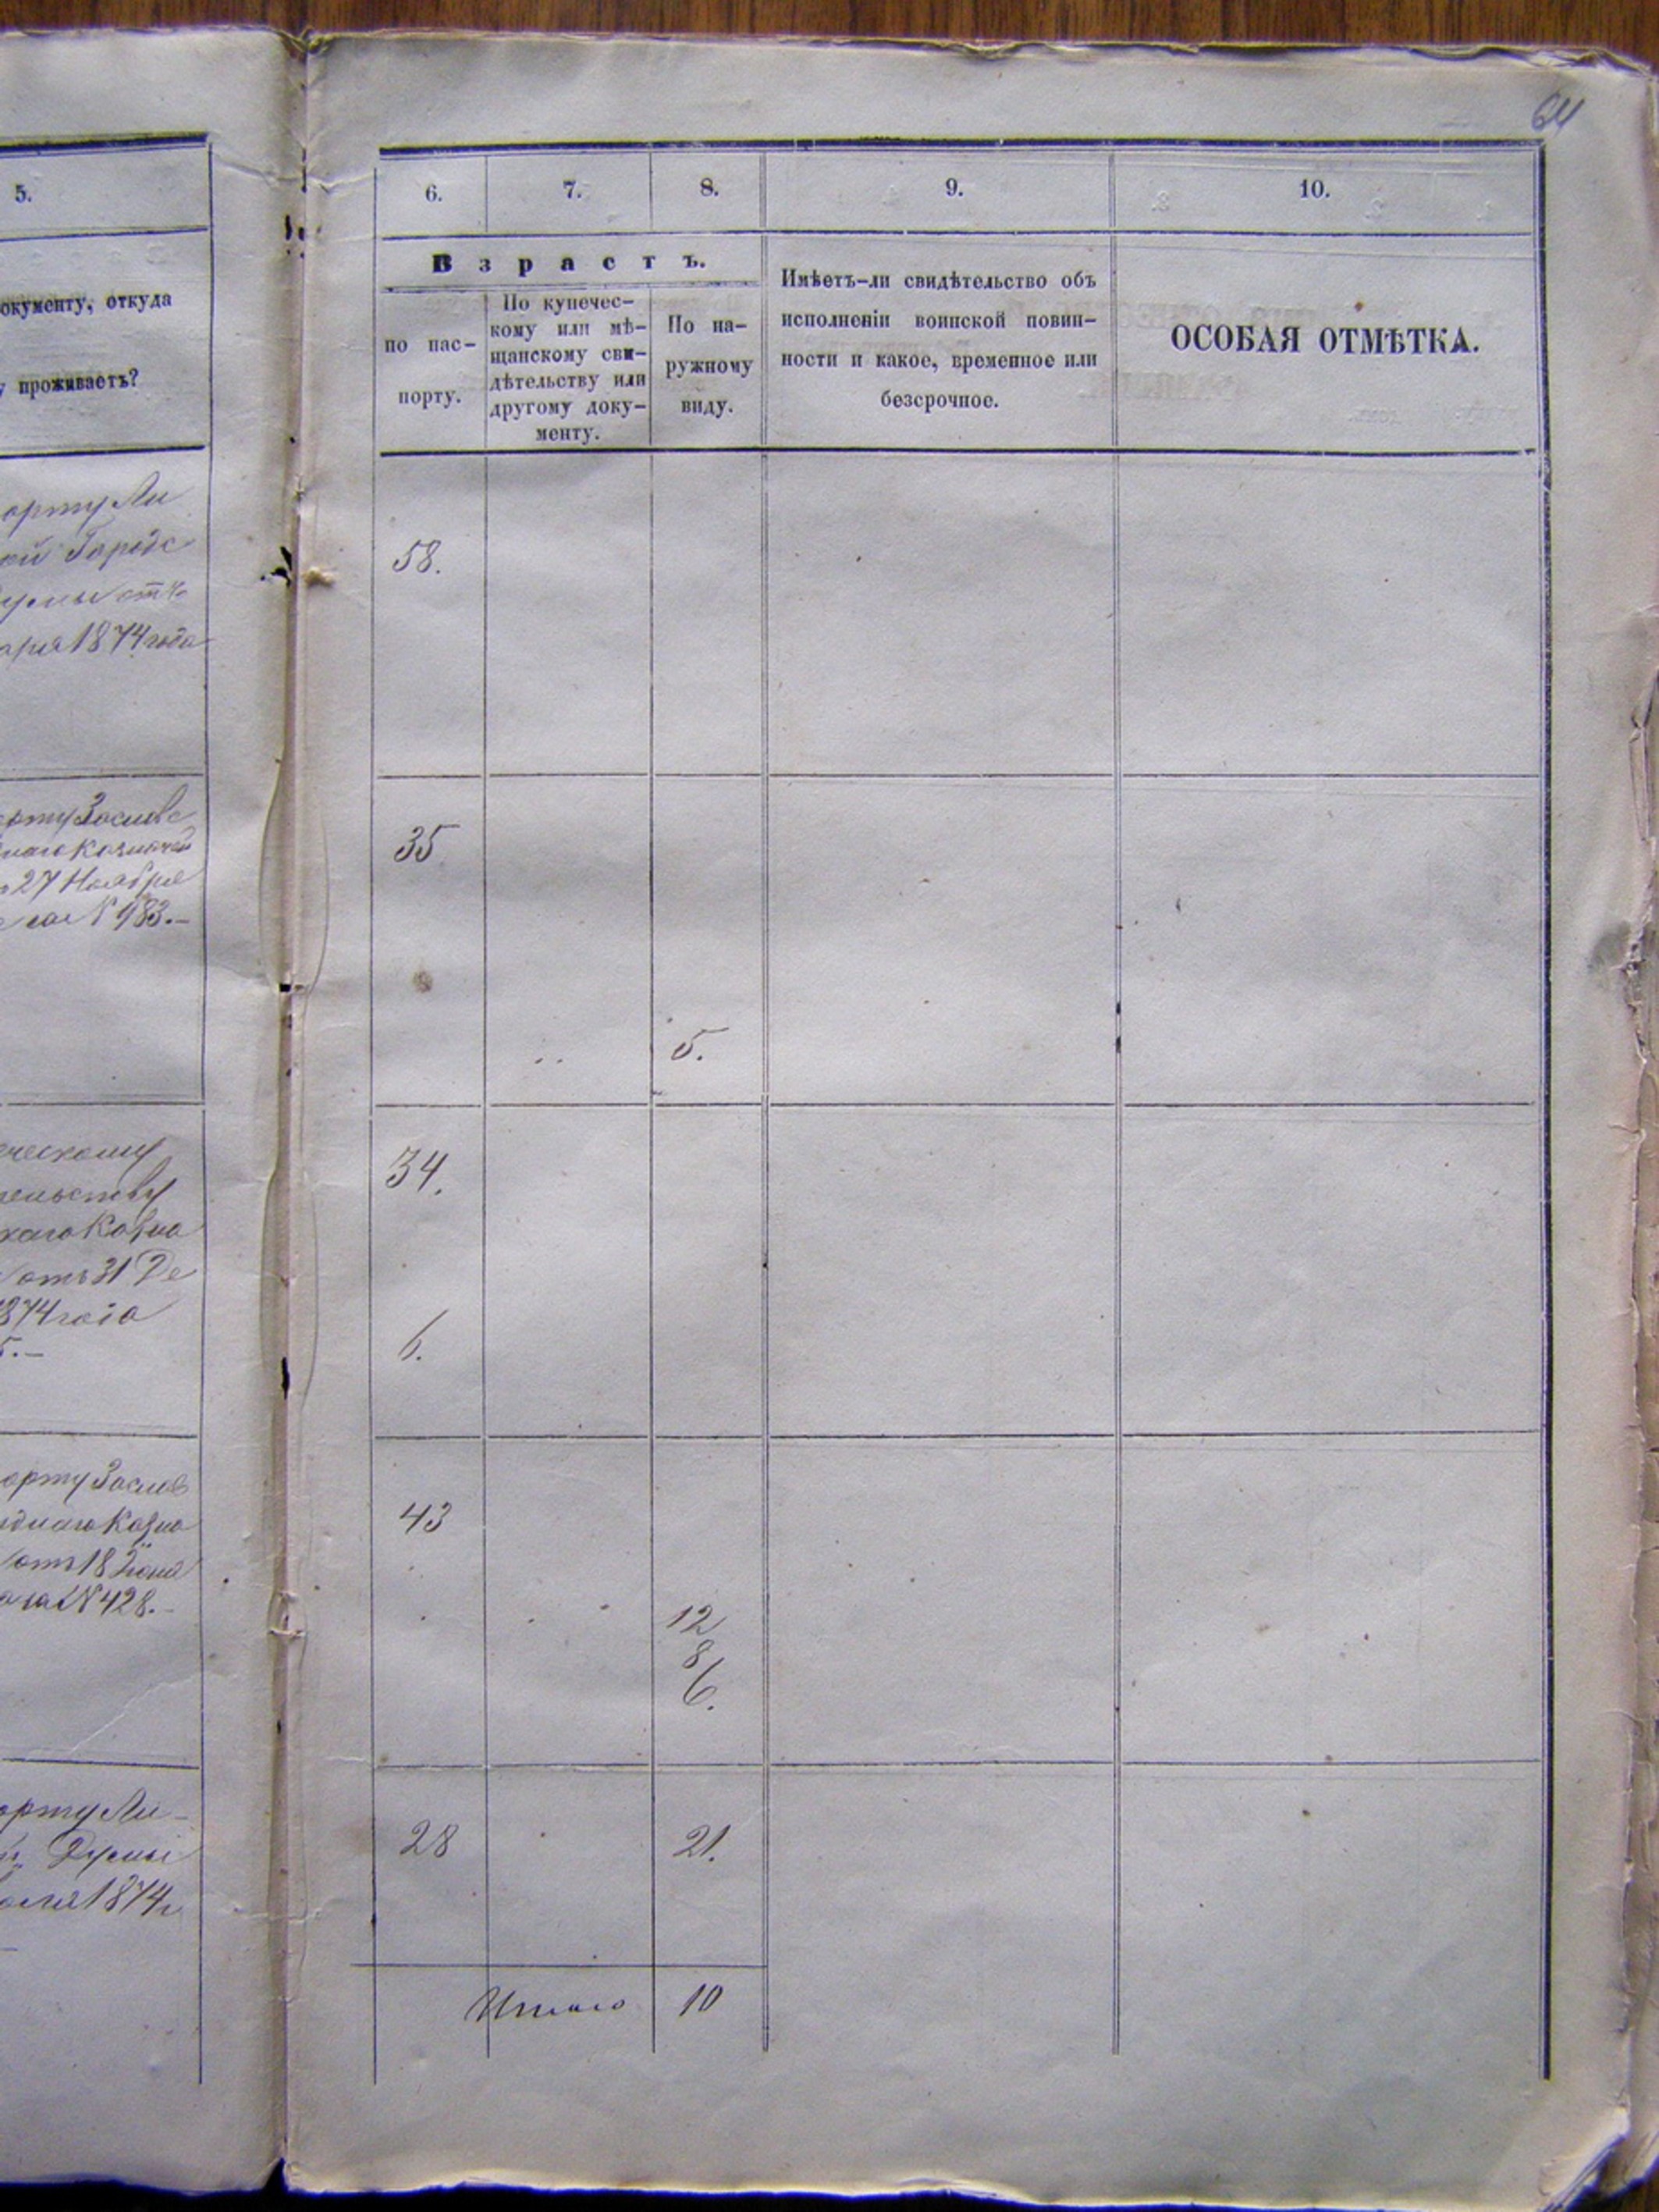 64
5.
окументу, откуда
у проживаетъ?
орту Ли
ой Городс
умы отъ
аря 1874 года
орту Заслав
наго Казначей
27 Ноября
за N 983.—
ческому
тельству
скаго Казна
отъ 31 Де
1874 года
5.—
орту Заслав
зднаго Казна
отъ 18 Іюня
за N 428.—
орту Ли-
й Думы
1874 г
6. 7. 8. 9. 10.
Возрастъ.
по пас-
порту.
По купечес-
кому или мѣ-
щанскому сви-
дѣтельству или
другому доку-
менту.
По на-
ружному
виду.
Имѣетъ-ли свидѣтельство объ
исполненіи воинской повин-
ности и какое, временное или
безсрочное.
ОСОБАЯ ОТМѢТКА.
58.
35
5.
34.
6.
43
12
8
6.
28 21.
Итого 10